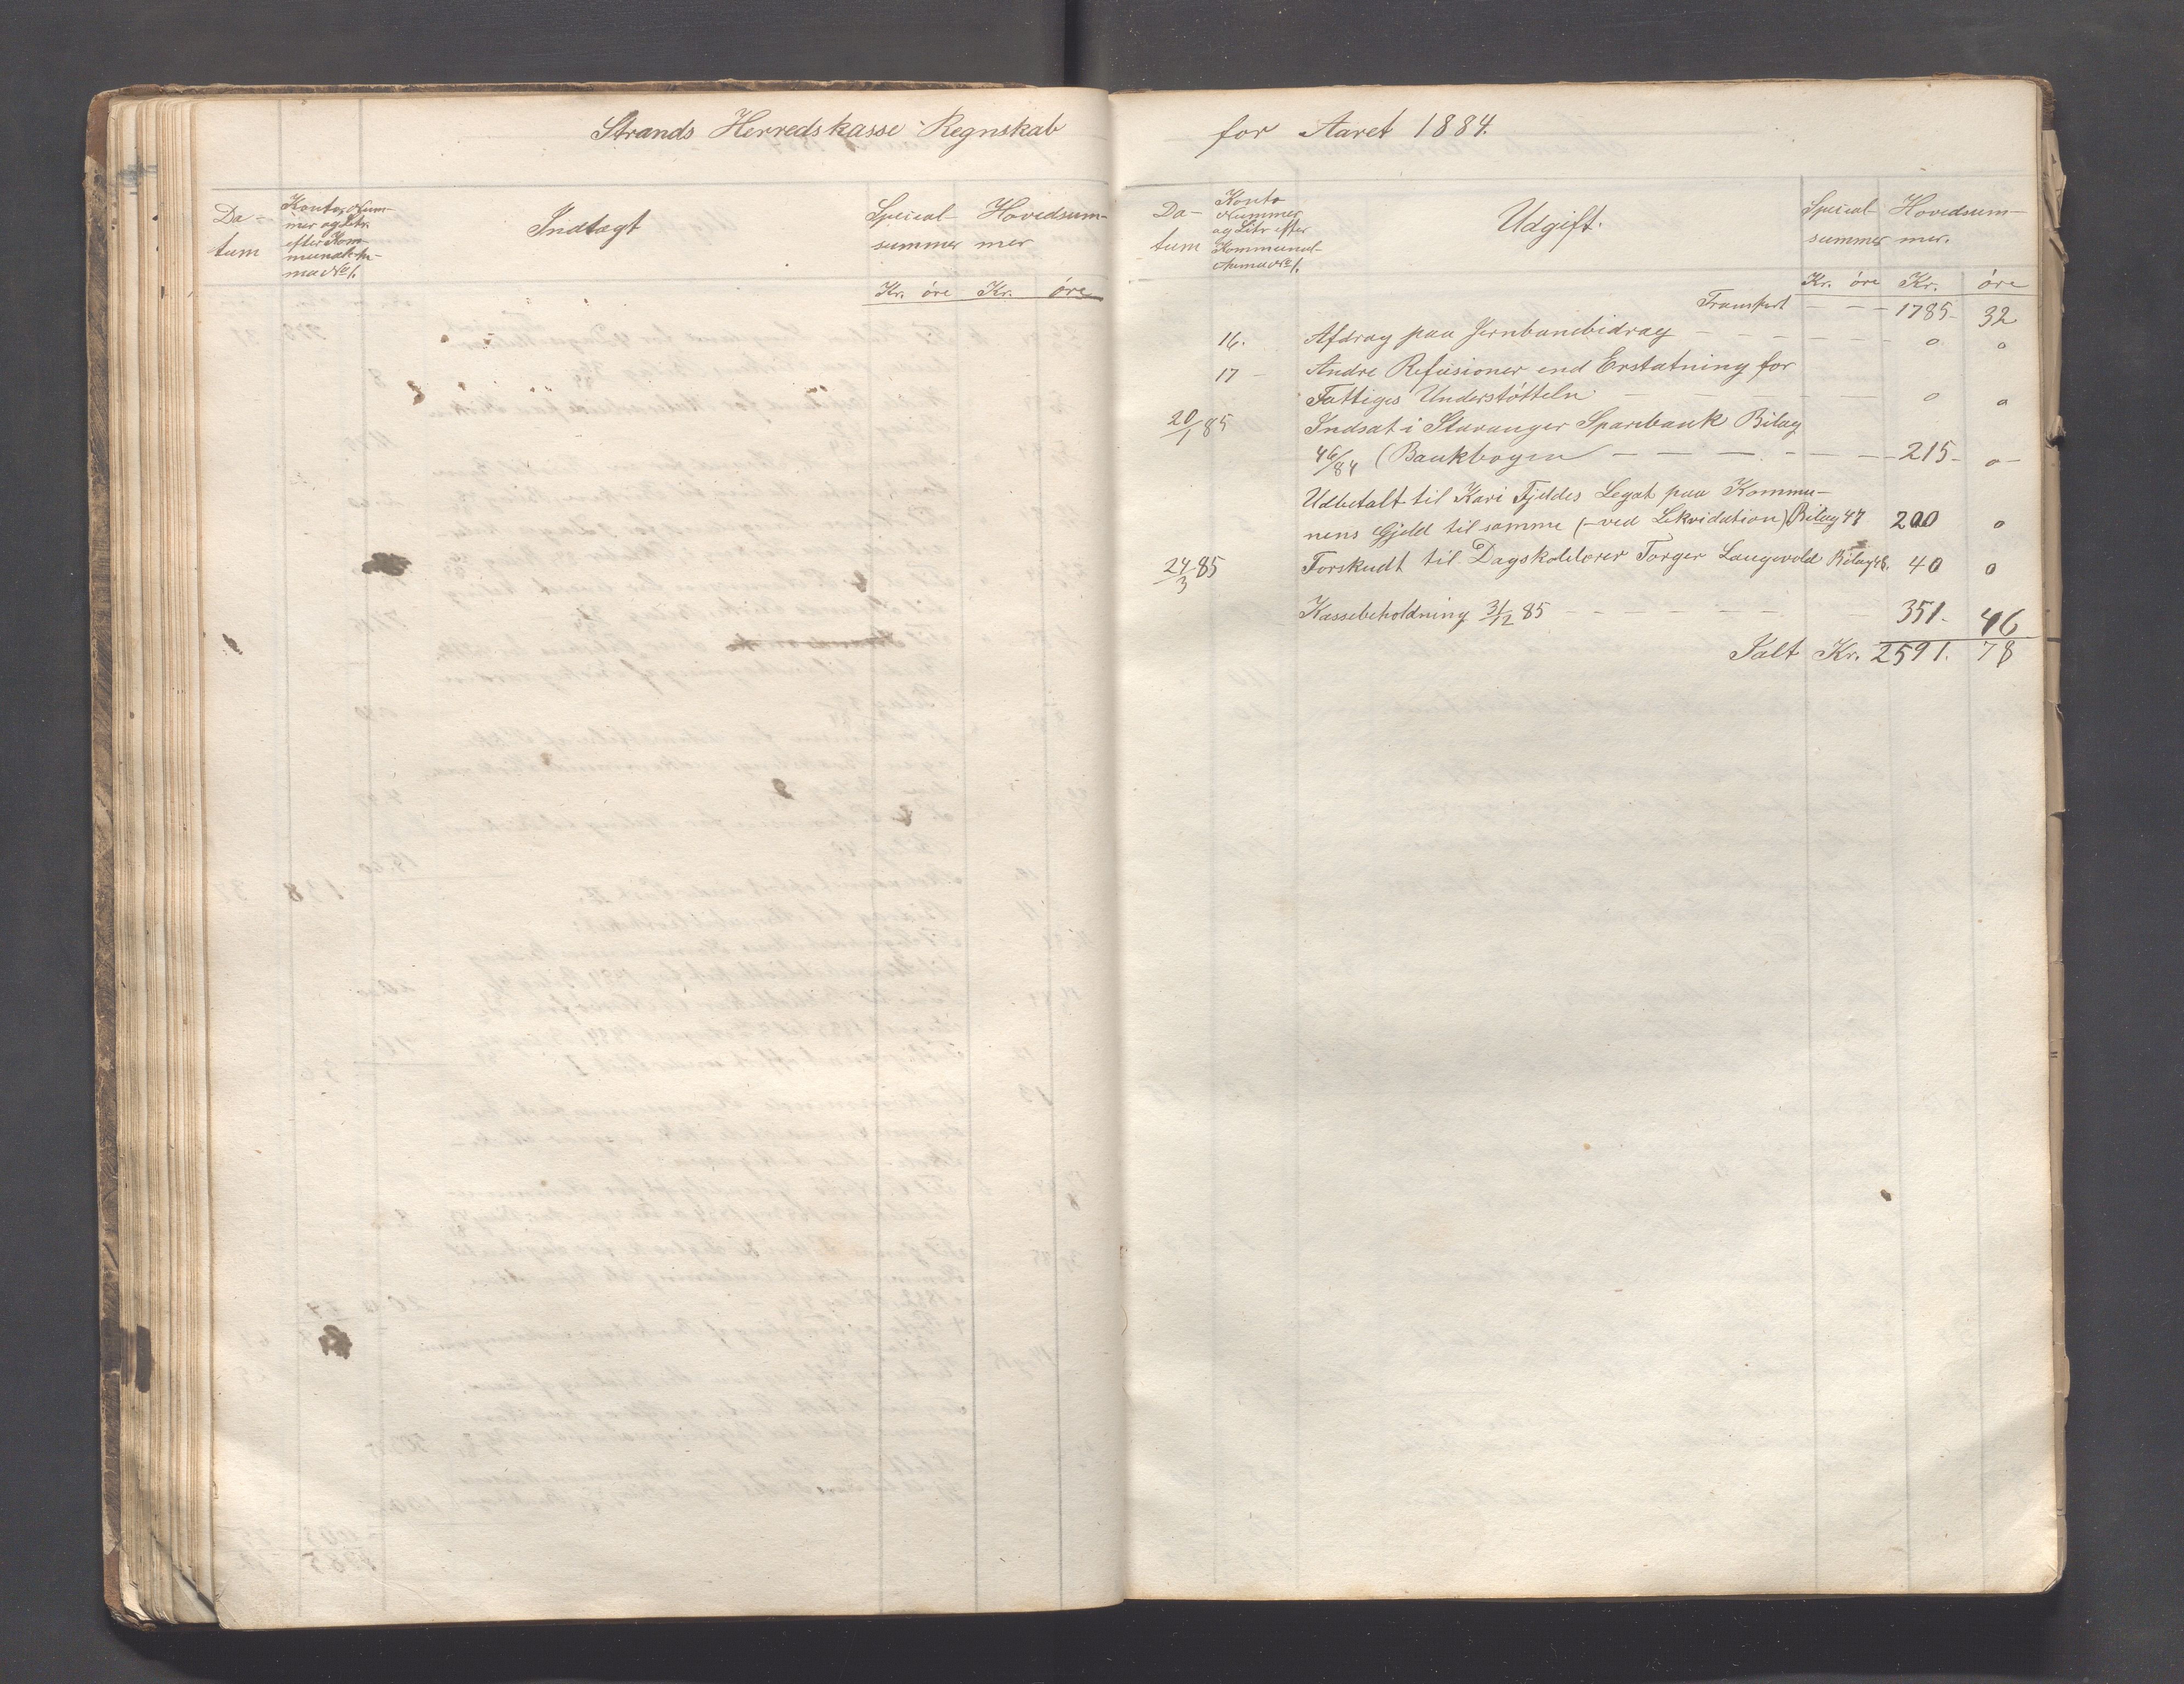 Strands Herredskasse Regnskab
Da-
tum
Konto, Num-
mer og Litr.
efter Kom-
munalske-
ma No 1.
Indtægt
Special-
summer
Hovedsum-
mer
Kr. øre Kr. øre
for Aaret 1884.
Da-
tum
Konto
Nummer
og Litr efter
Kommunal-
skema No 1.
Udgift.
Special-
summer
Hovedsum-
mer.
Kr. øre Kr. øre
Transport — — 1785 - 32
16. Afdrag paa Jernbanebidrag — — — o o
17 - Andre Refusioner end Erstatning for
Fattiges Understøtteln — — — o o
20/1 85 Indsat i Stavanger Sparebank Bilag
46/84 (Bankbogen — — — 215 - o -
Udbetalt til Kari Fjeldes Legat paa Kommu-
nens Gjeld til samme (-ved Likvidation) Bilag 47 200 o
24/3 85 Forskudt til Dagskolelærer Torger Langvold Bilag 48. 40 o
Kassebeholdning 31/12 85 — — — 351 - 46
Ialt Kr. 2591. 78